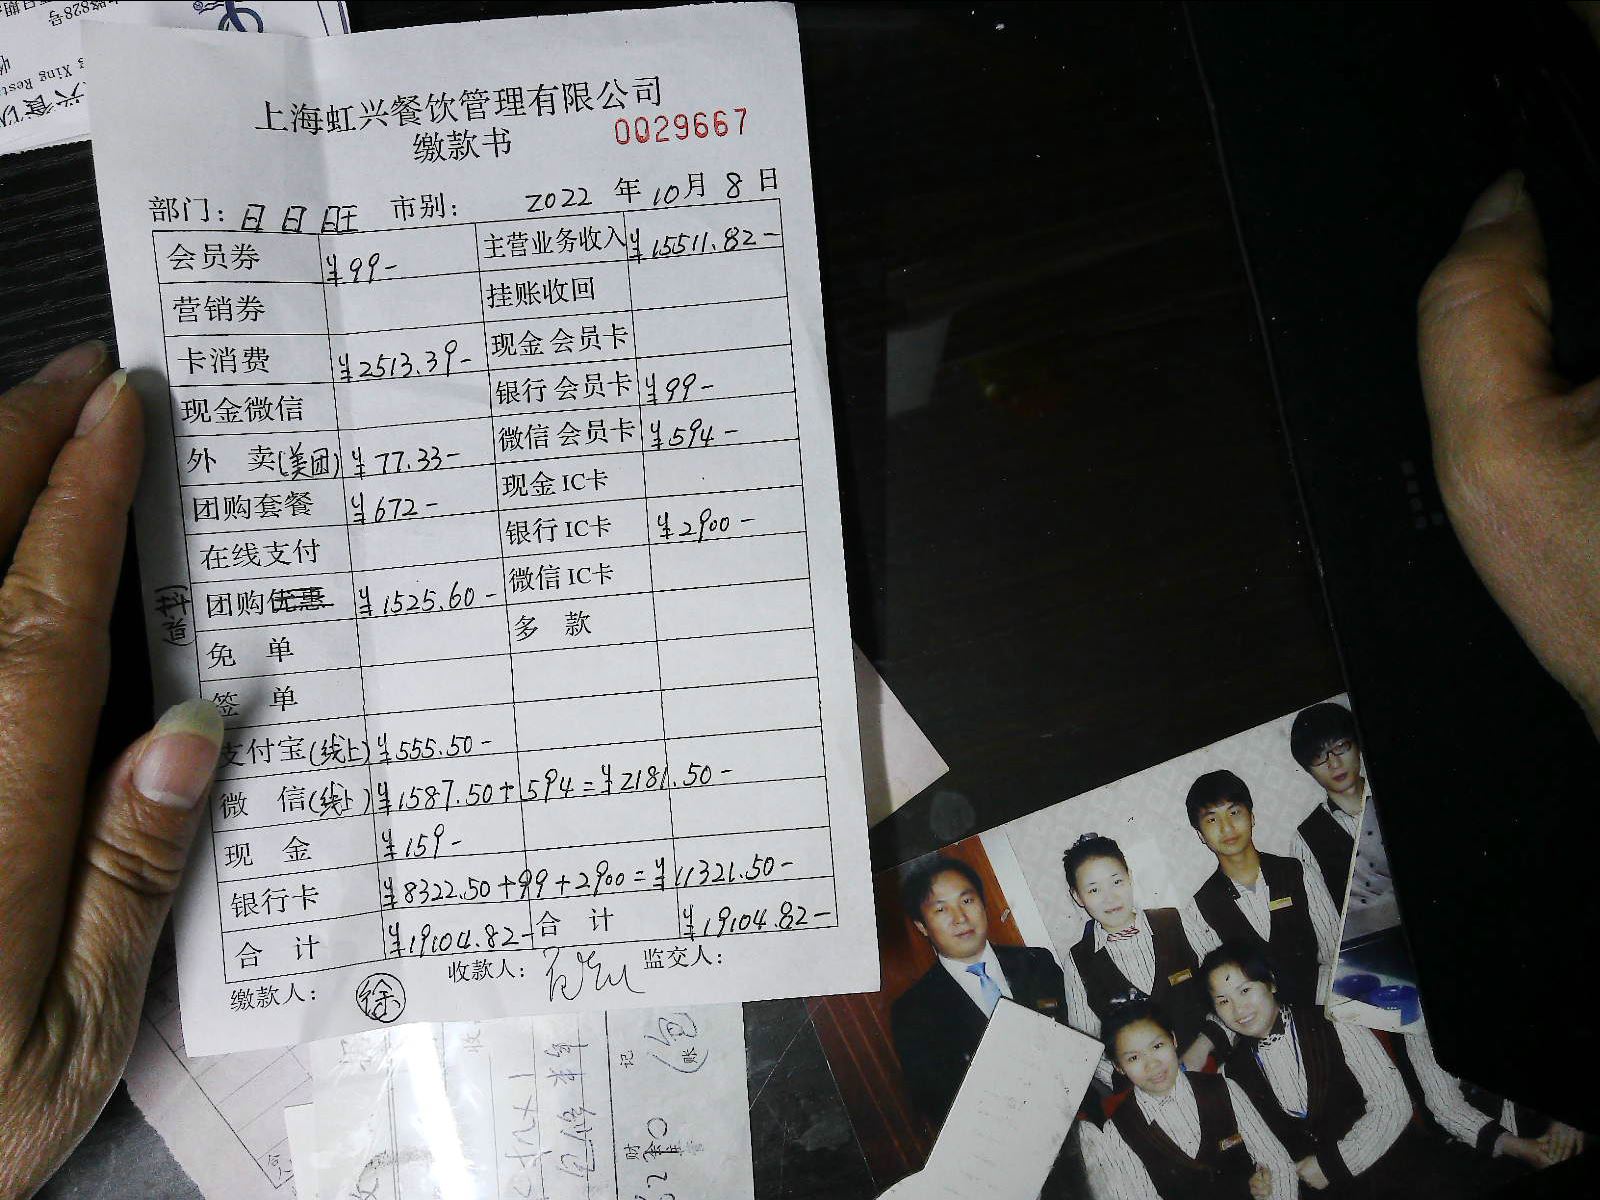 上海虹兴餐饮管理有限公司
缴款书 0029667
部门：日日旺 市别： 2022 年 10 月 8 日
会员券 ¥99- 主营业务收入 ¥15511.82-
营销券 挂账收回
卡消费 ¥2513.39- 现金会员卡
现金微信 银行会员卡 ¥99-
外 卖(美团) ¥77.33- 微信会员卡 ¥594-
团购套餐 ¥672- 现金IC卡
在线支付 银行IC卡 ¥2900-
团购优惠 ¥1525.60- 微信IC卡
免 单 多 款
签 单
支付宝(线上) ¥555.50-
微 信(线上) ¥1587.50+594=¥2181.50-
现 金 ¥159-
银行卡 ¥8322.50+99+2900=¥11321.50-
合 计 ¥19104.82- 合 计 ¥19104.82-
缴款人： 徐 收款人： 监交人：
路828号
g Xing Rest
兴食饮